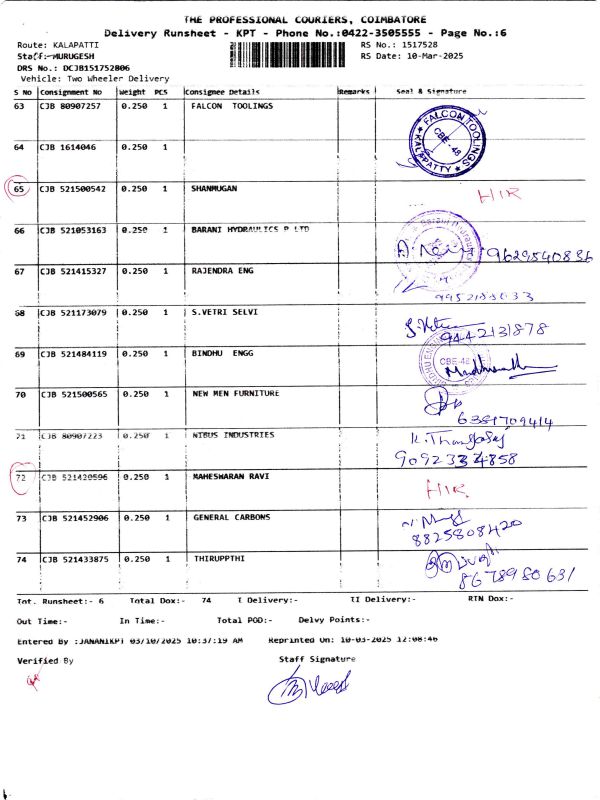 THE PROFESSIONAL COURIERS, COIMBATORE
Delivery Runsheet - KPT - Phone No.:0422-3505555 - Page No.:6
Route: KALAPATTI RS No.: 1517528
Staff:-MURUGESH RS Date: 10-Mar-2025
DRS No.: DCJB151752806
Vehicle: Two Wheeler Delivery
S No Consignment No Weight PCS Consignee Details Remarks Seal & Signature
63 CJB 80907257 0.250 1 FALCON TOOLINGS
FALCON TOOLINGS
CBE-48
KALAPATTY
64 CJB 1614046 0.250 1
65 CJB 521500542 0.250 1 SHANMUGAN HIR
66 CJB 521053163 0.250 1 BARANI HYDRAULICS P LTD
9629540836
67 CJB 521415327 0.250 1 RAJENDRA ENG
9952188033
68 CJB 521173079 0.250 1 S.VETRI SELVI
9442131878
69 CJB 521484119 0.250 1 BINDHU ENGG
CBE-48
70 CJB 521500565 0.250 1 NEW MEN FURNITURE
6381709414
71 CJB 80907223 0.250 1 NIBUS INDUSTRIES K. Thangaraj
9092334858
72 CJB 521420596 0.250 1 MAHESWARAN RAVI HIR
73 CJB 521452906 0.250 1 GENERAL CARBONS
8825808420
74 CJB 521433875 0.250 1 THIRUPPTHI
8678980631
Tot. Runsheet:- 6 Total Dox:- 74 I Delivery:- II Delivery:- RTN Dox:-
Out Time:- In Time:- Total POD:- Delvy Points:-
Entered By :JANANIKPT 03/10/2025 10:37:19 AM Reprinted On: 10-03-2025 12:08:46
Verified By Staff Signature